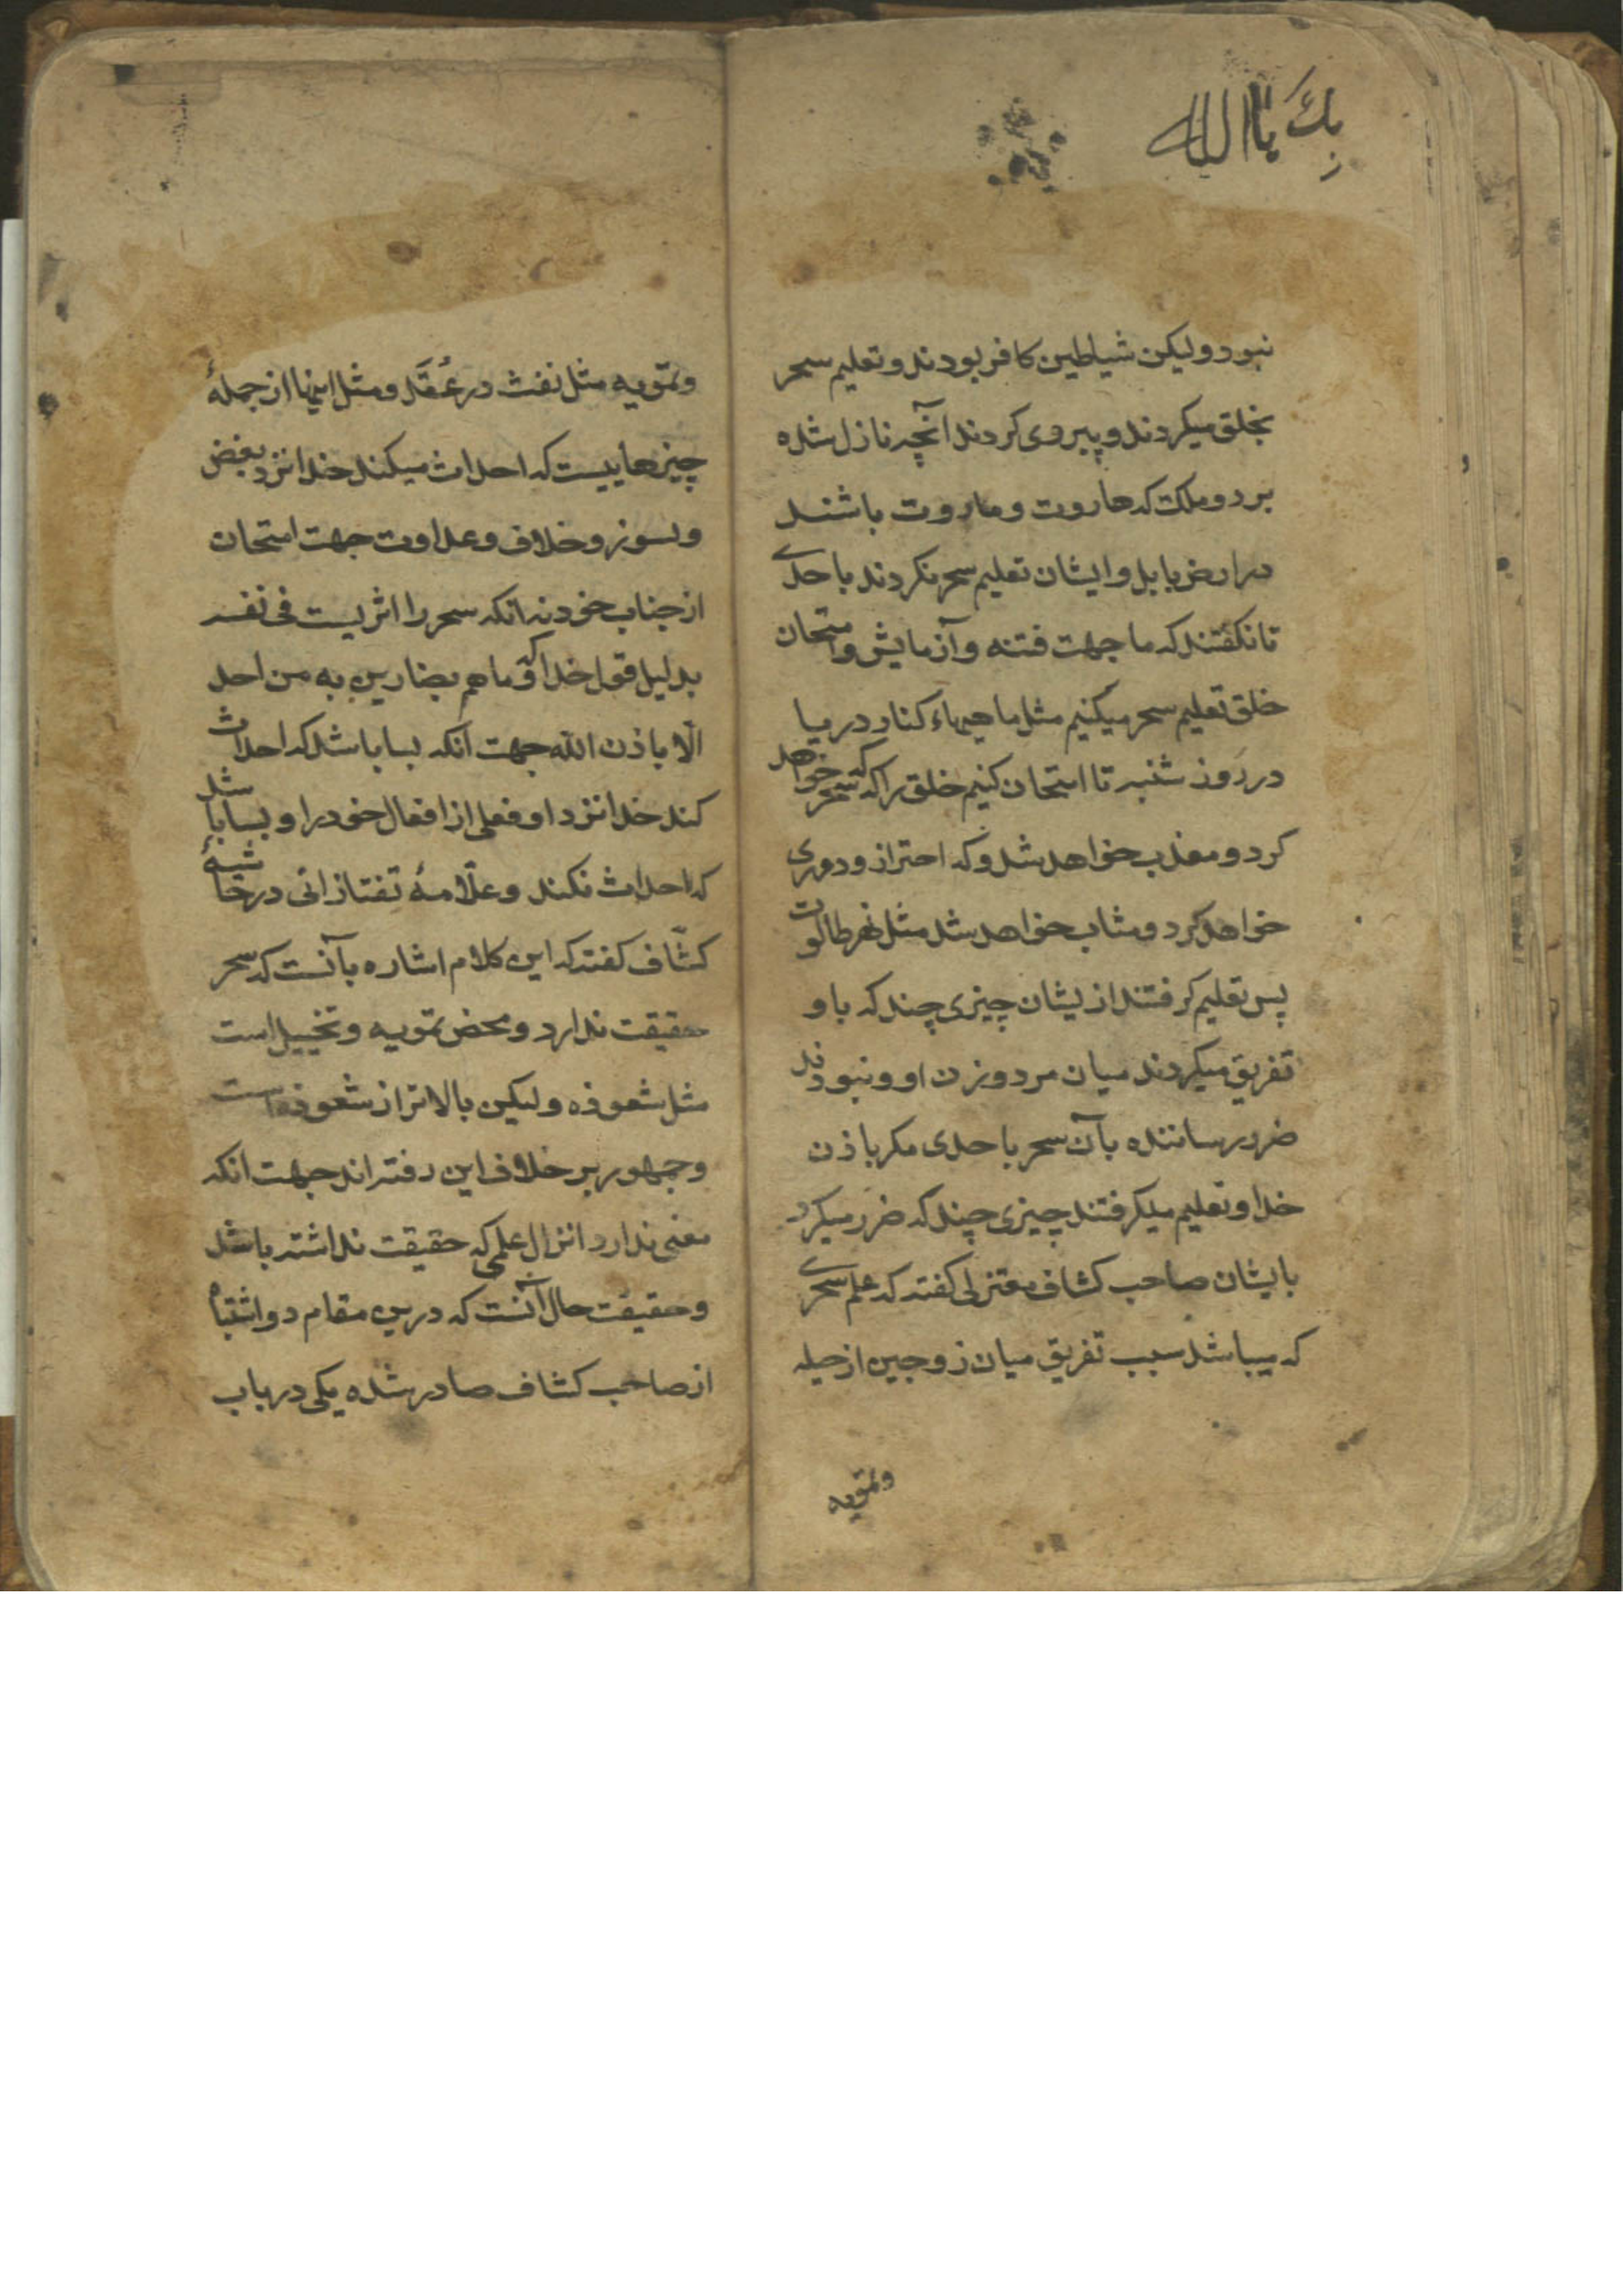 بك يا الله
نبود و ليكن شياطين كافر بودند و تعليم سحر
بخلق ميكردند و پيروى كردند آنچه نازل شده
بر دو ملكت كه هاروت و ماروت باشند
در ارض بابل و ايشان تعليم سحر نكردند باحدے
تا نكفتند كه ما جهت فتنه و آزمايش و امتحان
خلق تعليم سحر ميكنيم مثل ماهيهاء كنار دريا
در روز شنبه تا امتحان كنيم خلق را كه كه سحر خواهد
كرد و معذب خواهد شد و كه احتراز و دورى
خواهد كرد و مثاب خواهد شد مثل نهر طالوت
پس تعليم كرفتند از يشان چيزى چند كه باو
تفريق ميكردند ميان مرد و زن او و نبودند
ضرر رساننده بآن سحر باحدى مكر باذن
خدا و تعليم ميكرفتند چيزى چند كه ضرر ميكرد
بايشان صاحب كشاف معتزلى كفته كه علم سحرے
كه ميباشد سبب تفريق ميان زوجين از حيله
وتمويه
وتمويه مثل نفث در عُقَد و مثل اينها از جملهٔ
چيزهاييست كه احداث ميكند خدا نزد بغض
و نسوز و خلاف و عداوت جهت امتحان
از جناب خود نه انكه سحر را اثريست فى نفسه
بدليل قول خدا كه و ما هم بضارين به من احد
الّا باذن الله جهت آنكه بسا باشد كه احداث
كند خدا نزد او فعلى از افعال خود را و بسا باشد
كه احداث نكند و علّامهٔ تفتازانى در حاشيهٔ
كشّاف كفته كه اين كلام اشاره بآنست كه سحر
حقيقت ندارد و محض تمويه و تخييل است
مثل شعوذه و ليكن بالاتر از شعوذه است
و جمهور بر خلاف اين رفته اند جهت انكه
معنى ندارد انزال علمى كه حقيقت نداشته باشد
و حقيقت حال آنست كه درين مقام دو اشتباه
از صاحب كشاف صادر شده يكى در باب